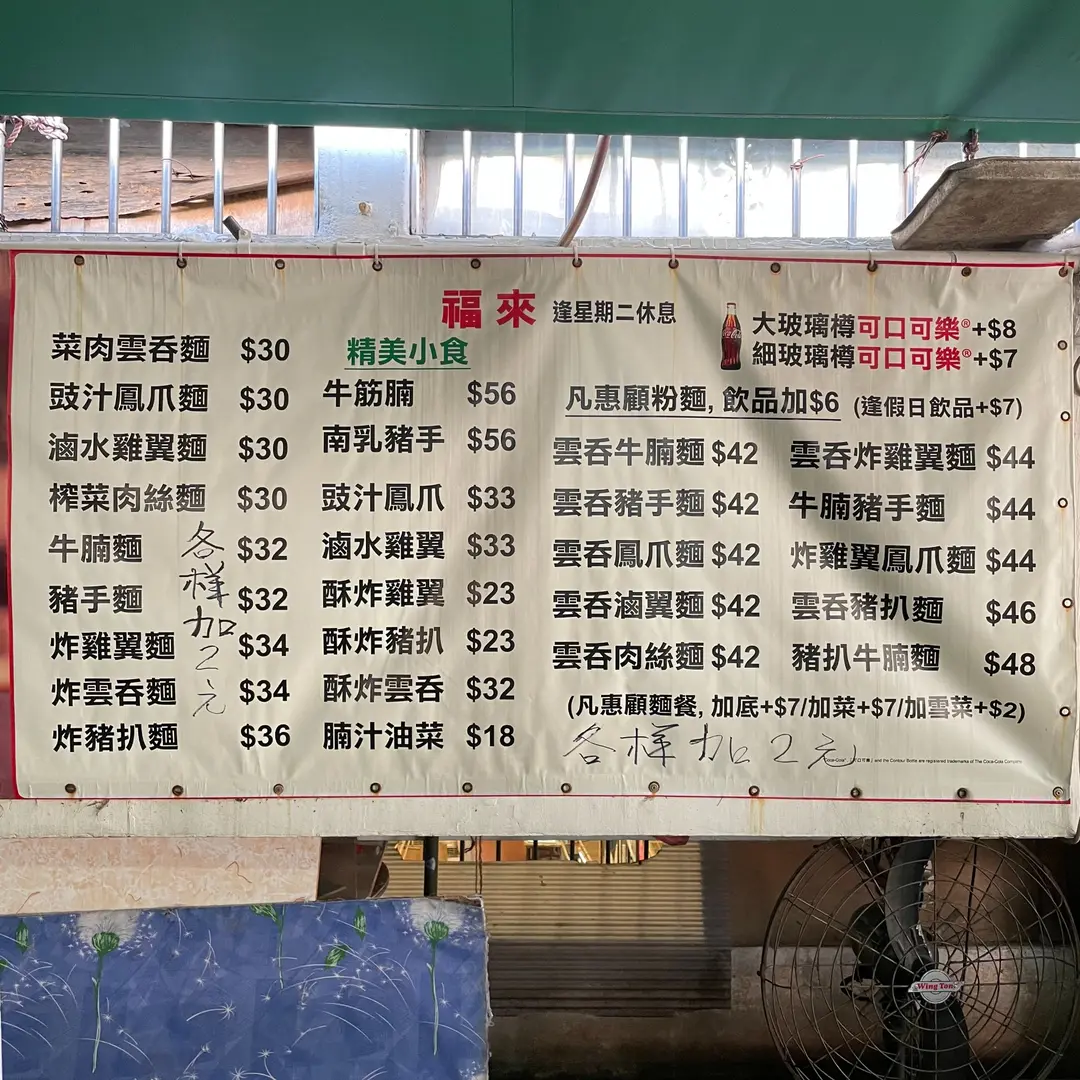 福來 逢星期二休息
大玻璃樽可口可樂®+$8
細玻璃樽可口可樂®+$7
菜肉雲吞麵 $30
豉汁鳳爪麵 $30
滷水雞翼麵 $30
榨菜肉絲麵 $30
牛腩麵 $32
豬手麵 $32
炸雞翼麵 $34
炸雲吞麵 $34
炸豬扒麵 $36
各樣加2元
精美小食
牛筋腩 $56
南乳豬手 $56
豉汁鳳爪 $33
滷水雞翼 $33
酥炸雞翼 $23
酥炸豬扒 $23
酥炸雲吞 $32
腩汁油菜 $18
凡惠顧粉麵, 飲品加$6 (逢假日飲品+$7)
雲吞牛腩麵 $42
雲吞豬手麵 $42
雲吞鳳爪麵 $42
雲吞滷翼麵 $42
雲吞肉絲麵 $42
雲吞炸雞翼麵 $44
牛腩豬手麵 $44
炸雞翼鳳爪麵 $44
雲吞豬扒麵 $46
豬扒牛腩麵 $48
(凡惠顧麵餐, 加底+$7/加菜+$7/加雪菜+$2)
各樣加2元
"Coca-Cola", 「可口可樂」 and the Contour Bottle are registered trademarks of The Coca-Cola Company.
Wing Tong